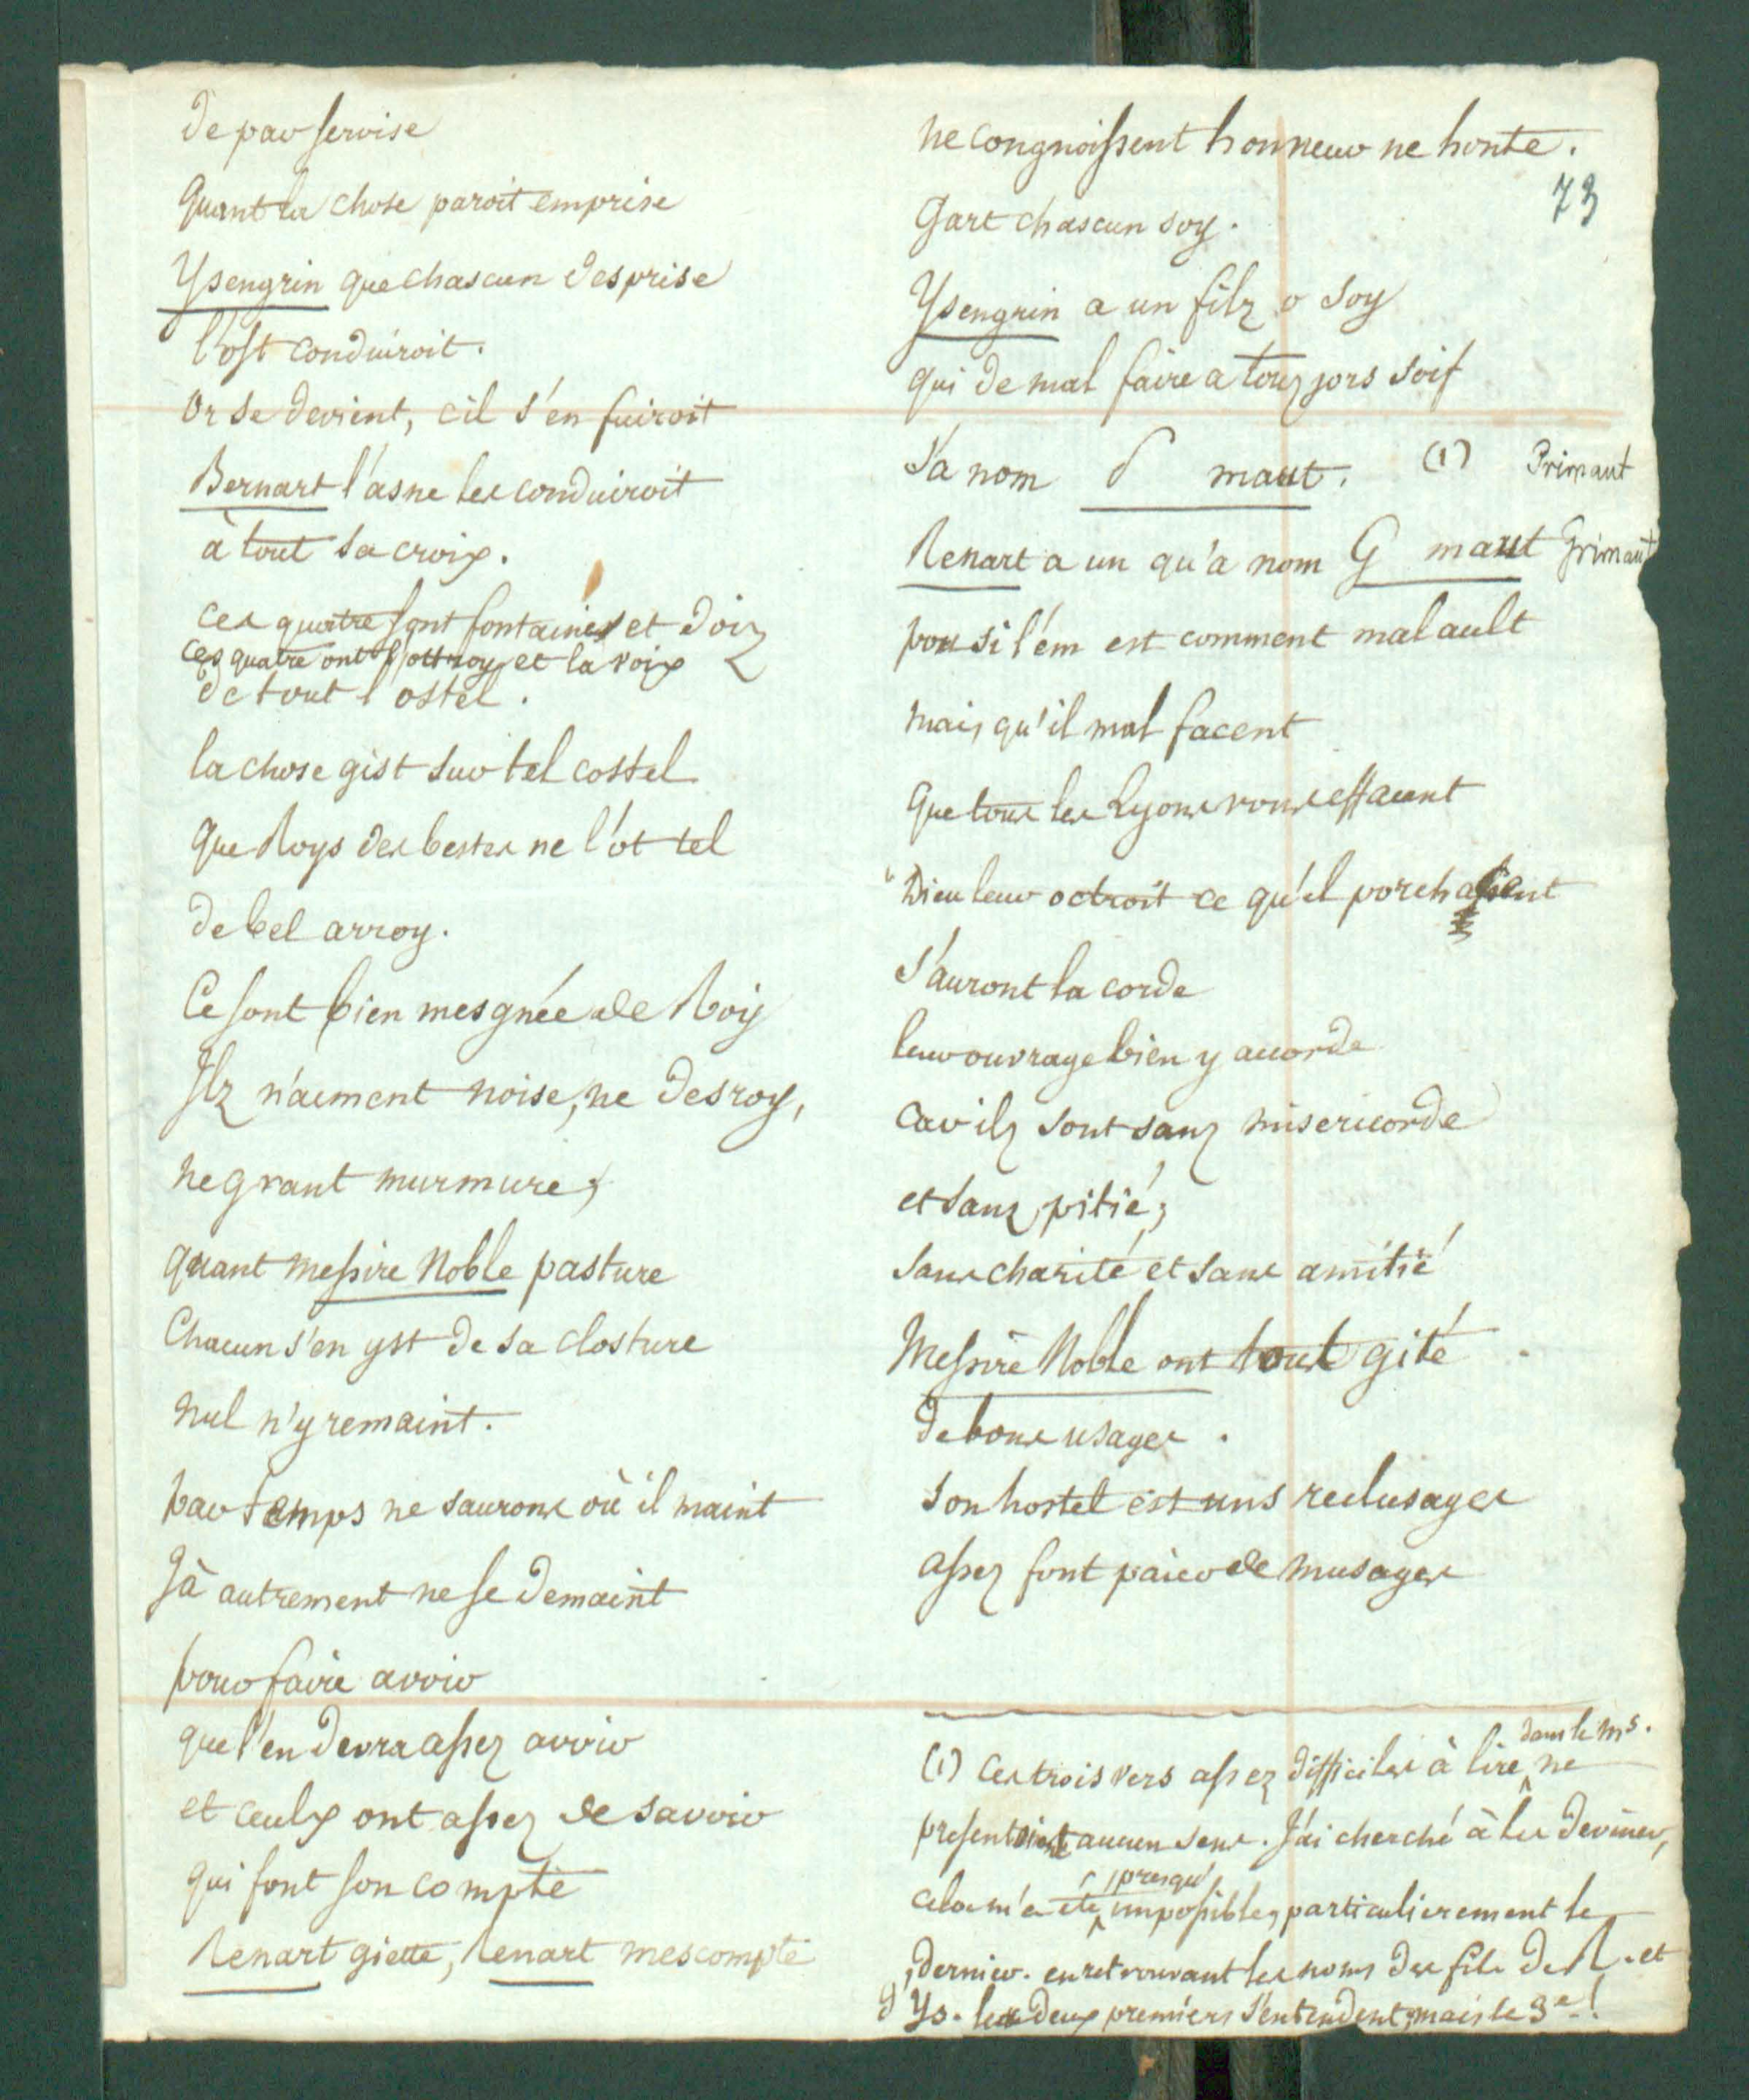 de par servise
Quant la chose paroit emprise
Ysengrin que chascun desprise
l'ost conduiroit.
Or se devient, cil s'en fuiroit
Bernart l'asne les conduiroit
à tout sa croix.
ces quatre sont fontaines et doiz
ces quatre ont l'ottroy et la voix
de tout l'ostel.
la chose gist sur tel costel
que Roys des bestes ne l'ot tel
de bel arroy.
Ce sont bien mesgnée de Roy
Ilz n'aiment noise, ne desroy,
ne grant murmure;
quant messire Noble pasture
Chacun s'en yst de sa closture
nul n'y remaint.
par temps ne saurons où il maint
Jà autrement ne se demaint
pour faire avoir
que l'en devra assez avoir
et ceulx ont assez de savoir
qui font son compte
Renart giette, Renart mescompte
ne congnoissent honneur ne honte.
73
Gart chascun soy.
Ysengrin a un filz o soy
qui de mal faire a touz jors soif
S'a nom P maut. (1) Primaut
Renart a un qu'a nom G maut Grimaut
pou si l'em est comment mal ault
mais qu'il mal facent
que tous les Lyons vous effacent
Dieu leur octroit ce qu'il porchassent
S'auront la corde
leur ouvrage bien y acorde
Car ilz sont sanz misericorde
et sanz pitié;
sans charité et sans amitié
Messire Noble ont tout gité
de bons usages.
son hostel est uns reclusages
assez font païer de musages
(1) Ces trois vers assez difficiles à lire dans le ms. ne
presentoient aucun sens. J'ai cherché à les deviner,
cela m'a été presqu' impossible, particulierement le
dernier. en retrouvant les noms des fils de R. et
d'Ys. les deux premiers s'entendent, mais le 3e!